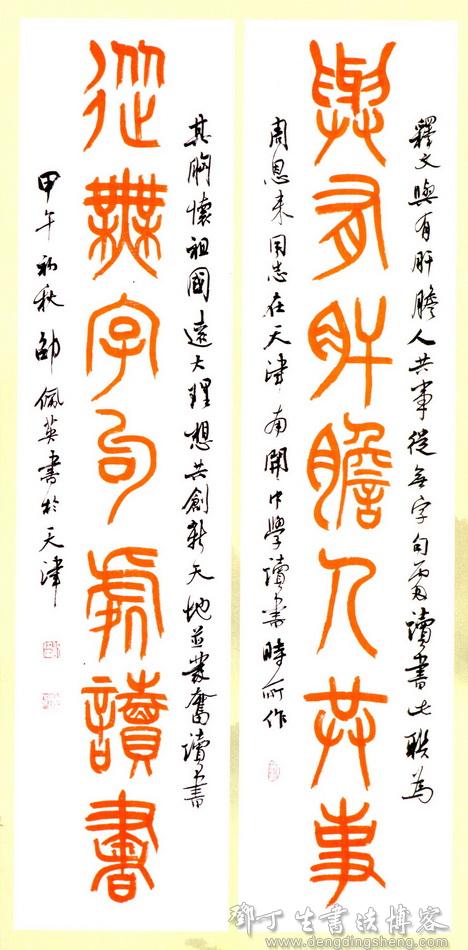 與有肝膽人共事
從無字句處讀書
釋文與有肝膽人共事從無字句處讀書此聯為
周恩来同志在天津南開中學讀書時所作
其胸懷祖國遠大理想共創新天地並發奮讀書
甲午初秋邵佩英書於天津
鄧丁生書法博客
www.dengdingsheng.com